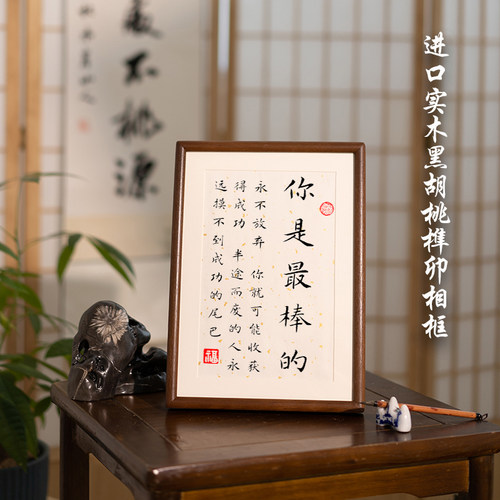 进口实木黑胡桃榫卯相框
你是最棒的
永不放弃 你就可能收获
得成功 半途而废的人永
远摸不到成功的尾巴
福
不桃源